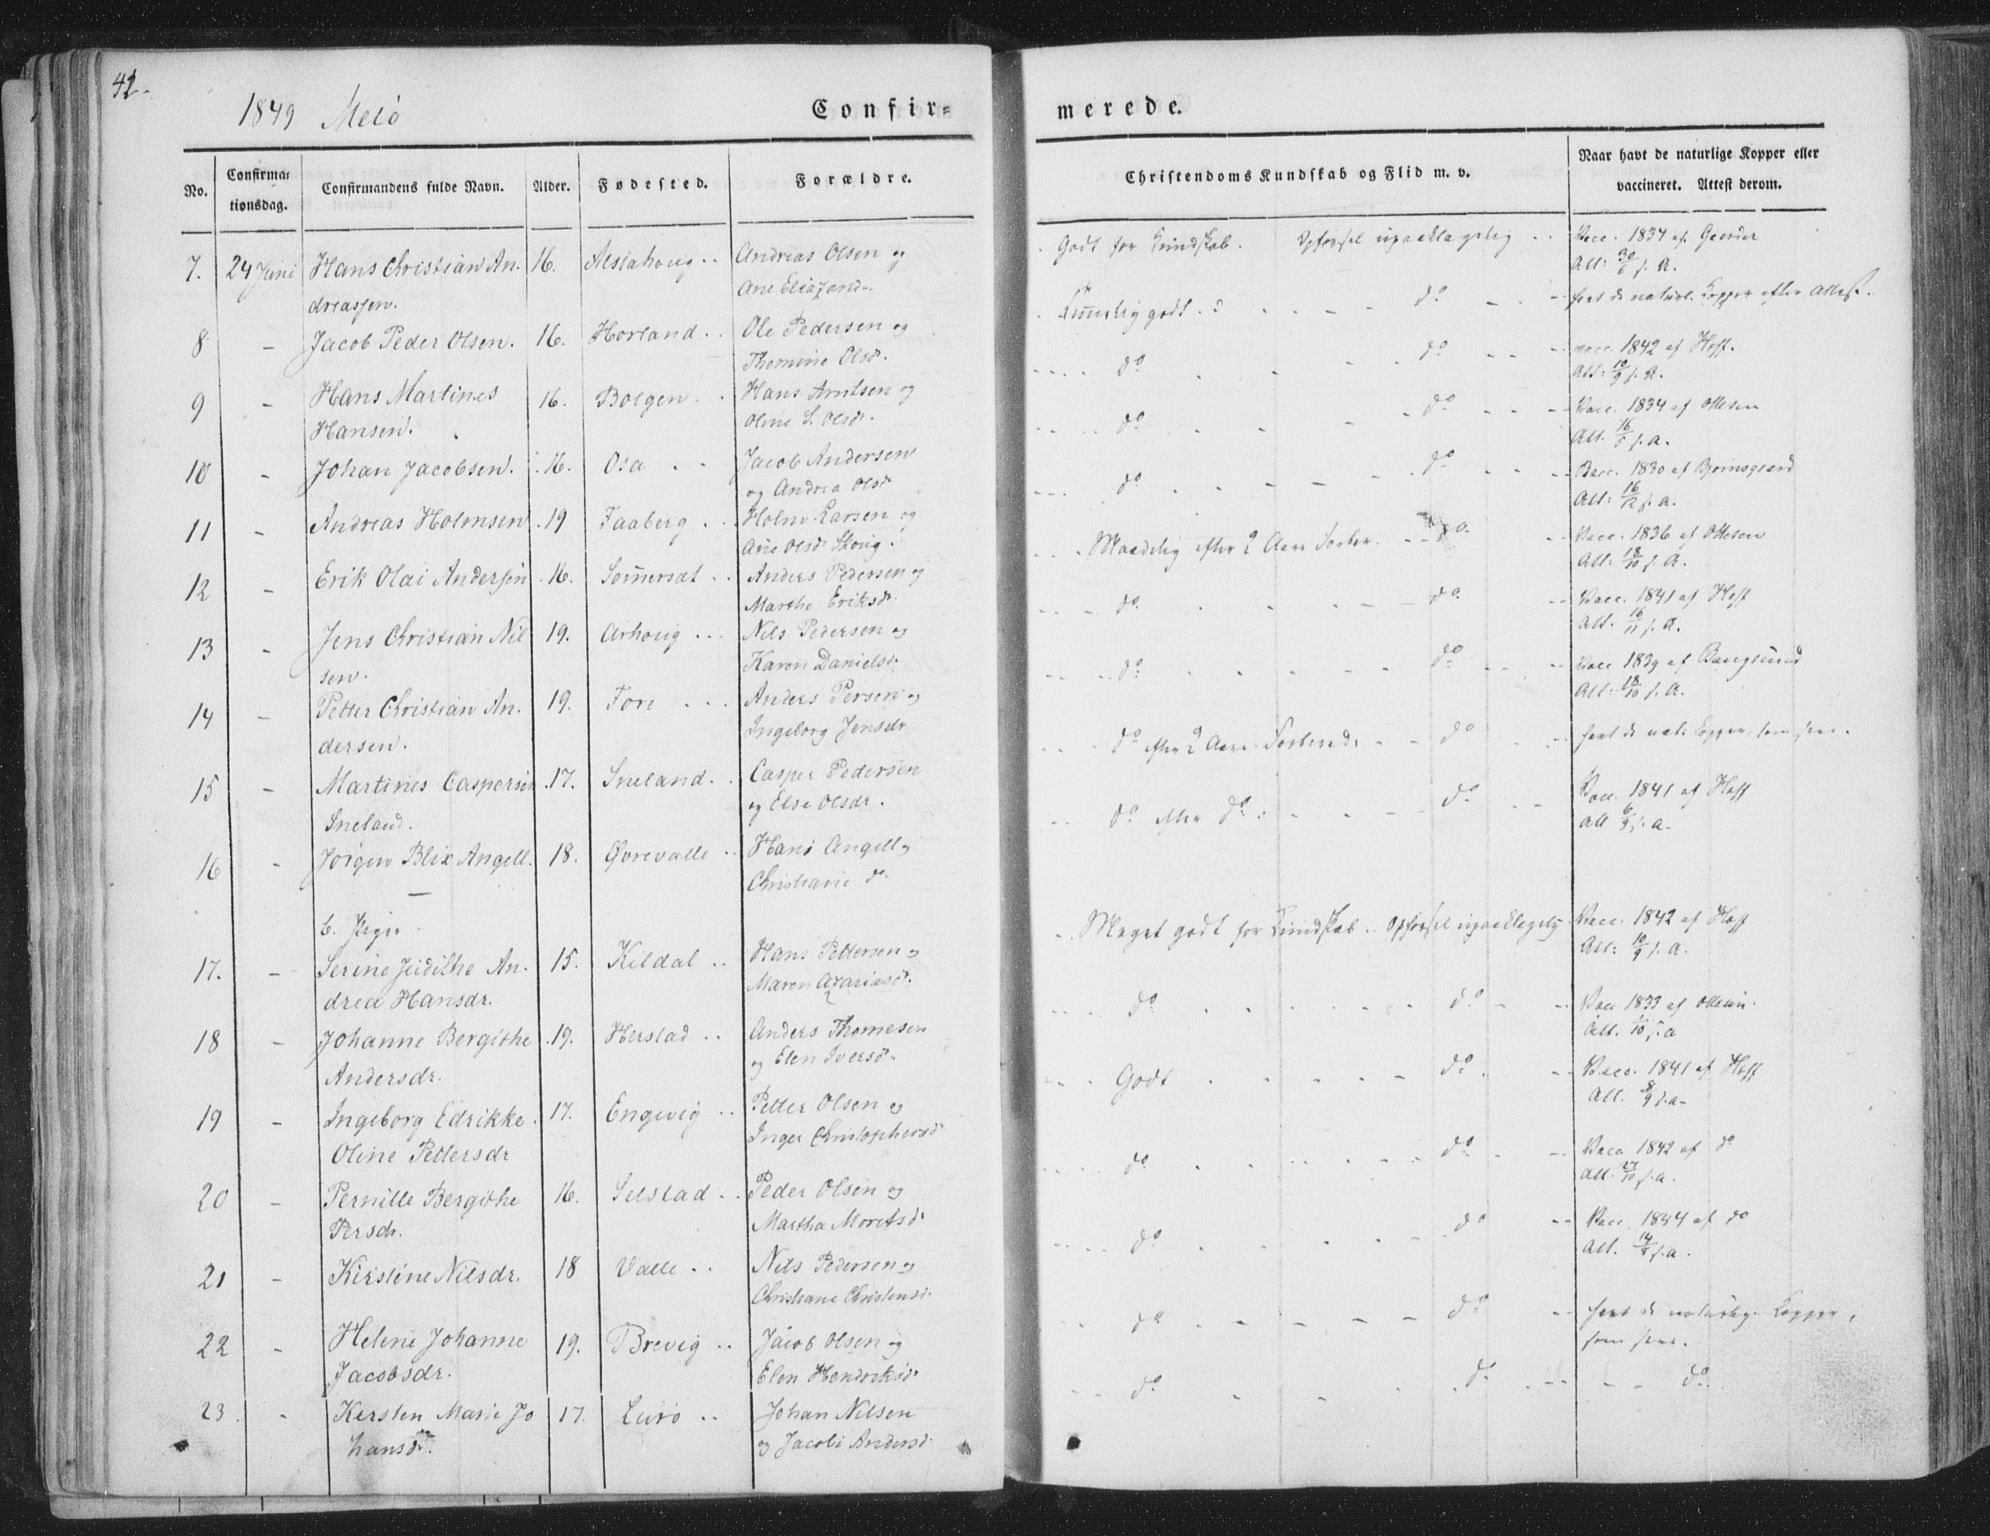 42.
1849 Melö
Confir-
merede.
No.
Confirma-
tionsdag.
Confirmandens fulde Navn.
Alder.
Fødested.
Forældre.
Christendoms Kundskab og Flid m. v.
Naar havt de naturlige Kopper eller
vaccineret. Attest derom.
7. 24 Juni Hans Christian An-
dreassen.
16.
Andreas Olsen og
Godt for Kundskab. Opførsel upaaklagelig
Vacc. 1834 af
Att: 30/6 s. A.
8 - Jacob Peder Olsen. 16. Horland.. Ole Pedersen og
Thomine Olsdr.
do
havt de naturl. Kopper efter Attest.
9 - Hans Martines
Hansen.
16. Bolgen. Hans Arntsen og
Oline S. Olsdr.
do do
vacc. 1842 af Hoff.
10 - Johan Jacobsen. 16. Osa .. Jacob Andersen
og Andrea Olsdr
do do
Vacc. 1834 af Ottesen
11 - Andreas Holmsen 19 Faaberg .. Holm Larsen og
Ane Olsdr
do do
Vacc. 1830 af
Att: 16/12 s. A.
12 - Erik Olai Andersen 16. Anders Pedersen og
Marthe Eriksdr.
Maadelig efter 2 Aars
do
Vacc. 1836 af Ottesen
Att: 18/10 s. A.
13 - Jens Christian Nil
sen.
19. Arhoug ... Nils Pedersen og
Karen Danielsdr.
do do
Vacc. 1841 af Hoff
Att. 16/11 s. A.
14 - Petter Christian An-
dersen.
19. Fore ... Anders Persen og
Ingeborg Jensdr
do do
Vacc 1839 af Bangsund
Att: 18/10 s. A.
15 - Martines Caspersen
Sneland.
17. Sneland. Casper Pedersen
og Else Olsdr.
do efter 2 Aars
do
havt de nat. Kopper, som
16 - Jörgen Blix Angell. 18. Øvrevalle .. Hans Angell og
Christiane do
do efter do do
Vacc. 1841 af Hoff
Att 6/9 s. A.
b. Piger
17. - Serine Judithe An-
drea Hansdr.
15. Kildal .. Hans Pettersen og
Maren Azariasdr.
Meget godt for Kundskab.. Opførsel upaaklagelig
Vacc. 1842 af Hoff
Att: 10/9 s. A.
18 - Johanne Bergithe
Andersdr.
19. Herstad .. Anders Thomesen
og Elen Iversdr.
do do
Vacc 1833 af Ottesen.
19 - Ingeborg Edrikke
Oline Pettersdr
17. Engevig .. Petter Olsen og
Inger Christophersdr
Godt do
Vacc. 1841 af Hoff
Att. 8/9 s. A.
20 - Pernille Bergithe
Persdr.
16. Selstad .. Peder Olsen og
Martha Moretsdr
do do
Vacc 1842 af do
Att. 27/10 s. A.
21 - Kirstine Nilsdr. 18 Valle .. Nils Pedersen og
Christiane Christensdr.
do do
Vacc. 1844 af do
22 - Helene Johanne
Jacobsdr.
19. Brevig .. Jacob Olsen og
Elen Hendriksdr
do do
havt de naturlige Kopper,
som
23. - Kersten Marie Jo
hansdr.
17. Johan Nilsen
og Jacobi Andersdr
do do
do